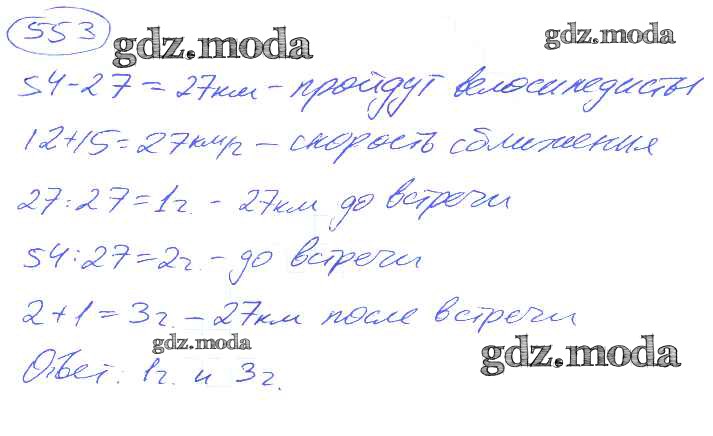 553
gdz.moda
gdz.moda
54-27=27км-пройдут велосипедисты
12+15=27км/г-скорость сближения
27:27=1г.-27км до встречи
54:27=2г.-до встречи
2+1=3г.-27км после встречи
gdz.moda
gdz.moda
Ответ: 1г. и 3г.